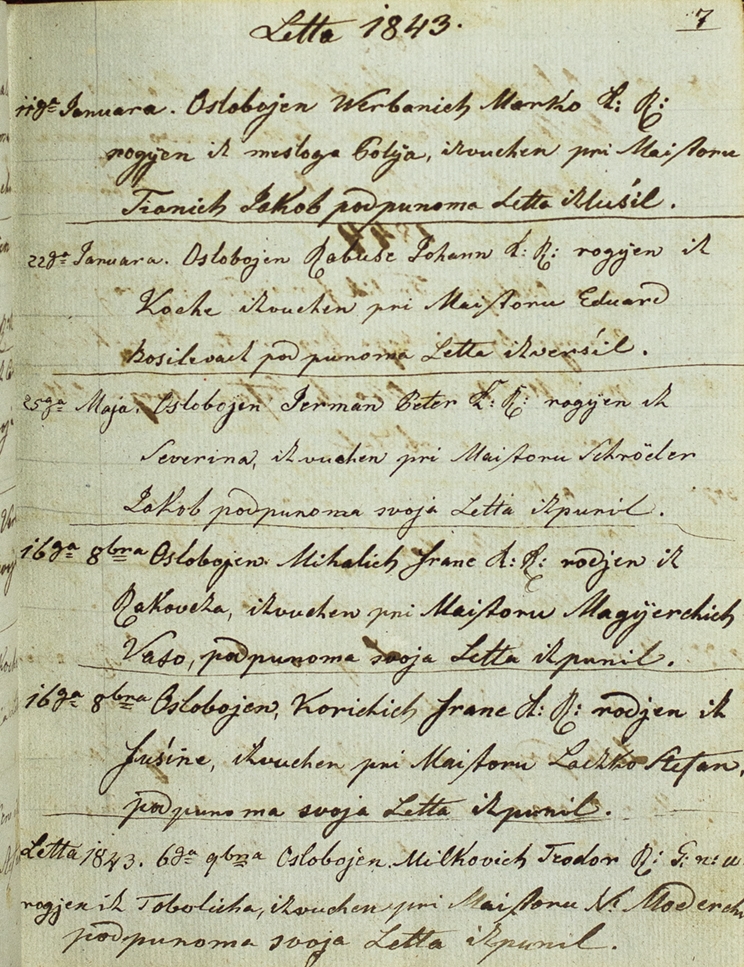 7
Letta 1843.
11ga Januara. Oslobojen Werbanich Marko K: R:
rogyen iz mesloga Polja, izvuchen pri Maistoru
Tranich Jakob podpunoma Letta izlušil.
22ga Januara. Oslobojen Rabuse Johann K: R: rogyen iz
Koche izvuchen pri Maistoru Eduard
podpunoma Letta izveršil.
25ga Maja. Oslobojen Jerman Peter K: R: rogyen iz
Severina, izvuchen pri Maistoru Schröder
Jakob podpunoma svoja Letta izpunil.
16ga 8bra Oslobojen Mihalich Franc K: R: rodjen iz
Rakovcza, izvuchen pri Maistoru Magyerchich
Vaso, podpunoma svoja Letta izpunil.
16ga 8bra Oslobojen, Korichich Franc K: R: rodjen iz
Fusine, izvuchen pri Maistoru Laczko Stefan,
podpunoma svoja Letta izpunil.
Letta 1843. 6ga 9bra Oslobojen. Milkovich Teodor R: G: n: u
rogjen iz Tobolicha, izvuchen pri Maistoru N. Moderch
podpunoma svoja Letta izpunil.